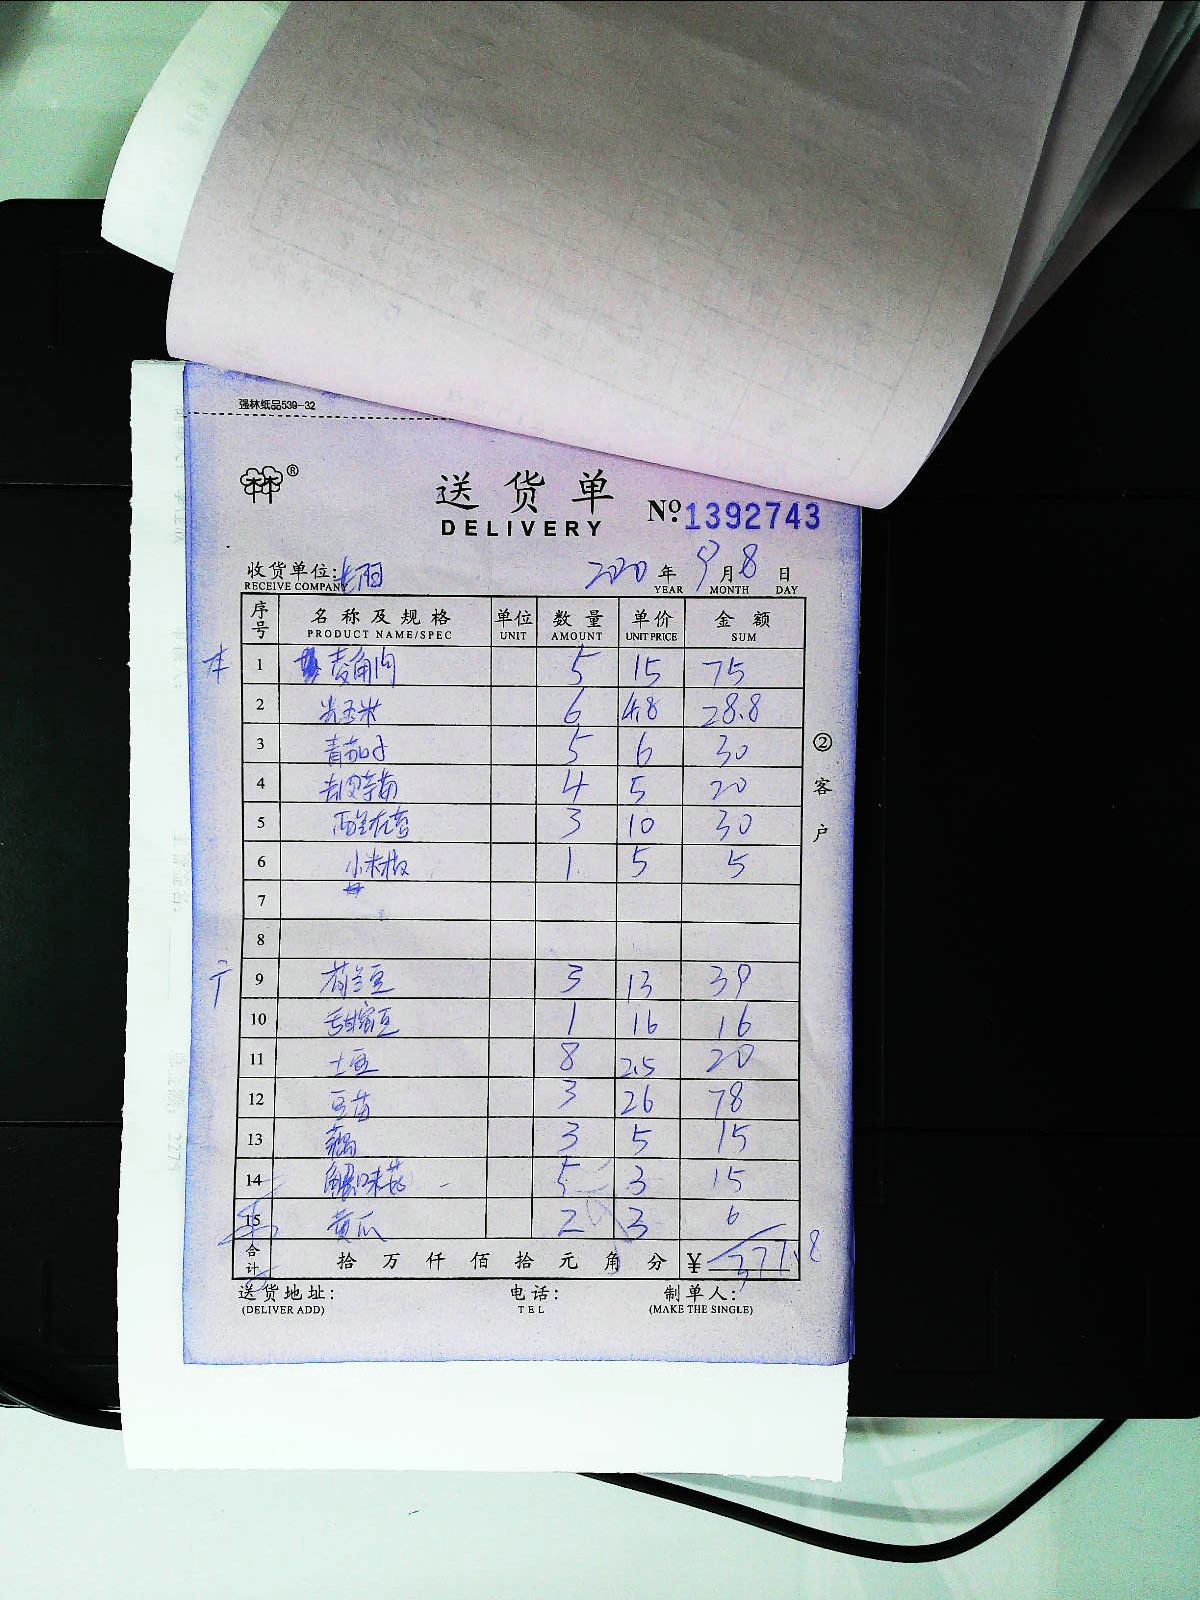 强林纸品539-32
林林®
送货单
DELIVERY
№ 1392743
收货单位: 长阳 2020 年 9 月 8 日
RECEIVE COMPANY YEAR MONTH DAY
序号 名称及规格 单位 数量 单价 金额
PRODUCT NAME/SPEC UNIT AMOUNT UNIT PRICE SUM
本 1 菱角肉 5 15 75
2 光玉米 6 4.8 28.8
3 青茄子 5 6 30
4 去皮茅芋 4 5 20
5 3 10 30
6 小米椒 1 5 5
7
8
9 荷兰豆 3 13 39
10 甜蜜豆 1 16 16
11 土豆 8 2.5 20
12 豆苗 3 26 78
13 藕 3 5 15
14 蟹味菇 5 3 15
15 黄瓜 2 3 6
合计 拾 万 仟 佰 拾 元 角 分 ¥ 377.8
②客户
送货地址: 电话: 制单人:
(DELIVER ADD) TEL (MAKE THE SINGLE)